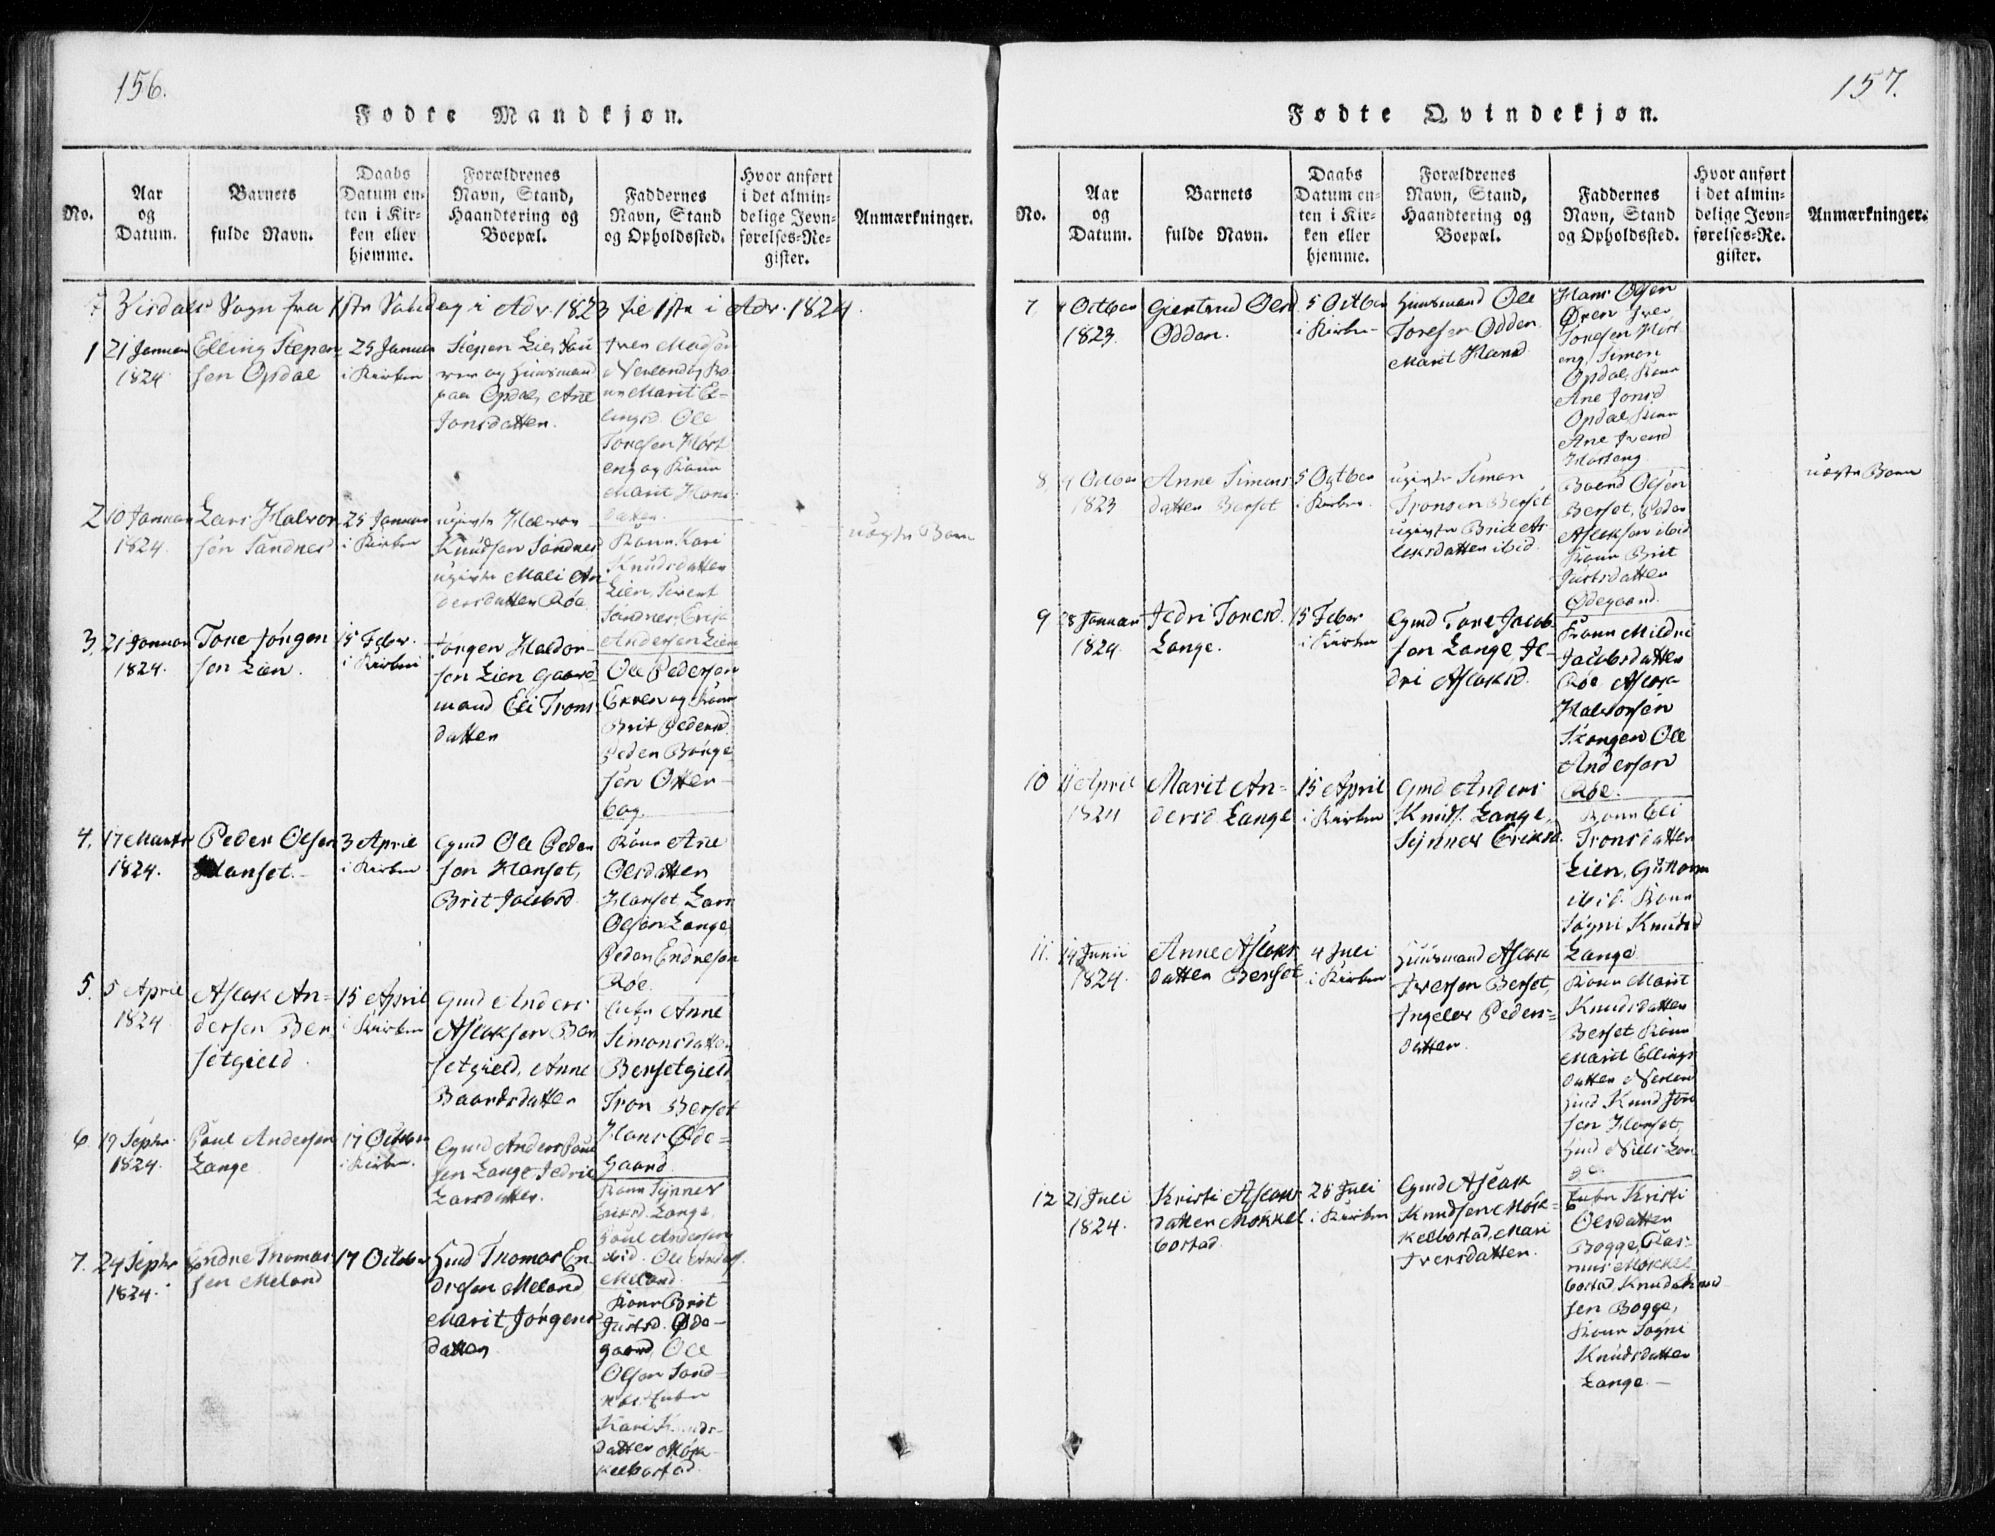 156.
Fødte Mandkjøn.
No.
Aar
og
Datum.
Barnets
fulde Navn.
Daabs
Datum en-
ten i Kir-
ken eller
hjemme.
Forældrenes
Navn, Stand,
Haandtering og
Boepæl.
Faddernes
Navn, Stand
og Opholdssted.
Hvor anført
i det almin-
delige Jevn-
førelses-Re-
gister.
Anmærkninger.
Visdals Sogn fra 1ste Søndag i Adv. 1823 til 1ste i Adv. 1824.
1
21 Januar
1824
Elling Stepen
sen Opdal
25 Januar
i Kirken
Stepen Lie,
og Huusmand
paa Opdal, Ane
Jonsdatter.
Iver Madsen
Marit El-
lingsd. Ole
Toresen Hørst
eng og Kone
Marit Hans
datter.
2
10 Januar
1824.
Lars Halvor
sen Sandnes
25 Januar
i Kirken
ugivte Halvor
Knudsen Sandnes
ugivte Mali An
dersdatter Røe
Kone Kari
Knudsdatter
Lien, Sivert
Sandnes, Erik
Andersen Lien
uægte Barn
3.
21 Januar
1824.
Tore Jørgen
sen Lien.
15 Febr.
i Kirken
Jørgen Haldor-
sen Lien Gaard
mand Eli Trons
datter
Ole Pedersen
Ekren og Kone
Brit Pedersd
Peder Børge
sen Otter-
bog.
4.
17 Marts
1824.
Peder Olsen
Hanset.
3 April
i Kirken
Gmd Ole Peder
sen Hanset,
Brit Jacobsd
Kone Ane
Olsdatter
Hanset, Lars
Olsen Lange,
Peder Endresen
Røe.
5.
5 April
1824
Aslak An-
dersen Ber-
setgield.
15 April
i Kirken
Gmd Anders
Aslaksen Ber
setgield, Anne
Baardsdatter
Enke Anne
Simonsdatter
Bersetgield,
Tron Berset
Hans Øde-
gaard.
6
19 Septr.
1824.
Poul Andersen
Lange
17 October
i Kirken.
Gmd Anders Poul
sen Lange, Jedrie
Larsdatter.
Kone Synnev
Eriksd. Lange,
Poul Andersen
ibid. Ole Endres.
Meland.
7.
24 Septr
1824.
Endre Thomas
sen Meland
17 October
Hmd Thomas En
dresen Meland
Marit Jørgens
datter
Kone Brit
Justsd. Øde-
gaard, Ole
Olsen Sand-
nes. Enke
Kari Knuds-
datter Møk-
kelbostad.
157.
Fødte Qvindekjøn.
No.
Aar
og
Datum.
Barnets
fulde Navn.
Daabs
Datum en-
ten i Kir-
ken eller
hjemme.
Forældrenes
Navn, Stand,
Haandtering og
Boepæl.
Faddernes
Navn, Stand
og Opholdssted.
Hvor anført
i det almin-
delige Jevn-
førelses-Re-
gister.
Anmærkninger.
7.
4 Octber
1823.
Giertrud Olesd
Odden.
5 Octber
i Kirken
Huusmand Ole
Toresen Odden
Marit Hansd
Hans Olsen
Øren Iver
Toresen Hørst
eng, Simon
Opdal, Kone
Ane Jonsd
Opdal, Kone
Ane Iversd
Hørsteng.
8.
4 Octber
1823
Anne Simons
datter Berset
5 Octber
i Kirken
ugivte Simon
Tronsen Berset
ugivte Brit As-
laksdatter ibid.
Baard Olsen
Berset, Peder
Aslaksen ibid
Kone Brit
Justsdatter
Ødegaard.
uægte Barn
9
28 Januar
1824.
Jedri Toresd.
Lange.
15 Febr
i Kirken
Gmd Tore Jacob
sen Lange, Je-
dri Aslaksd.
Kone Mildri
Jacobsdatter
Røe, Aslak
Halvorsen
Ole
Andersen
Røe.
10
11 April
1824
Marit An-
dersd Lange
15 April
i Kirken
Gmd Anders
Knuds. Lange,
Synnev Eriksd.
Kone Eli
Tronsdatter
Lien, Guttorm
ibid. Kone
Søgni Knudsd
Lange
11.
14 Junii
1824.
Anne Aslaks
datter Berset
4 Juli
i Kirken
Huusmand Aslak
Iversen Berset,
Ingeler Peders-
datter.
Kone Marit
Knudsdatter
Berset Kone
Marit Ellings
datter Nerland
Hmd Knud Jon
sen Hanset,
Hmd Niels Lan
ge.
12
21 Juli
1824.
Kristi Aslaks
datter Møkkel
bostad.
25 Juli
i Kirken
Gmd Aslak
Knudsen Møk-
kelbostad, Mari
Iversdatter.
Enke Kristi
Olsdatter
Bogge, Ras-
mus Møkkel-
bostad, Knud Knud
sen Bogge,
Kone Søgni
Knudsdatter
Lange.